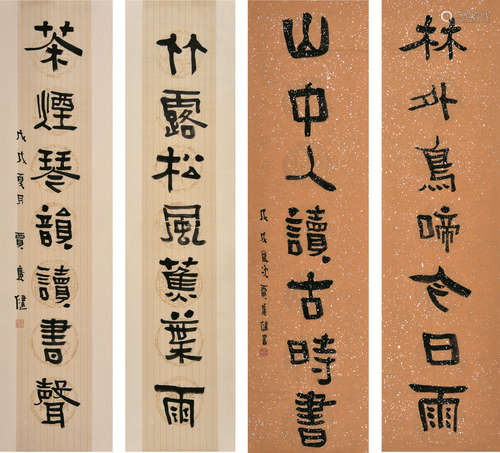 林外鳥啼今日雨
山中人讀古時書
竹露松風蕉葉雨
茶煙琴韻讀書聲
戊戌夏月 賈廣健